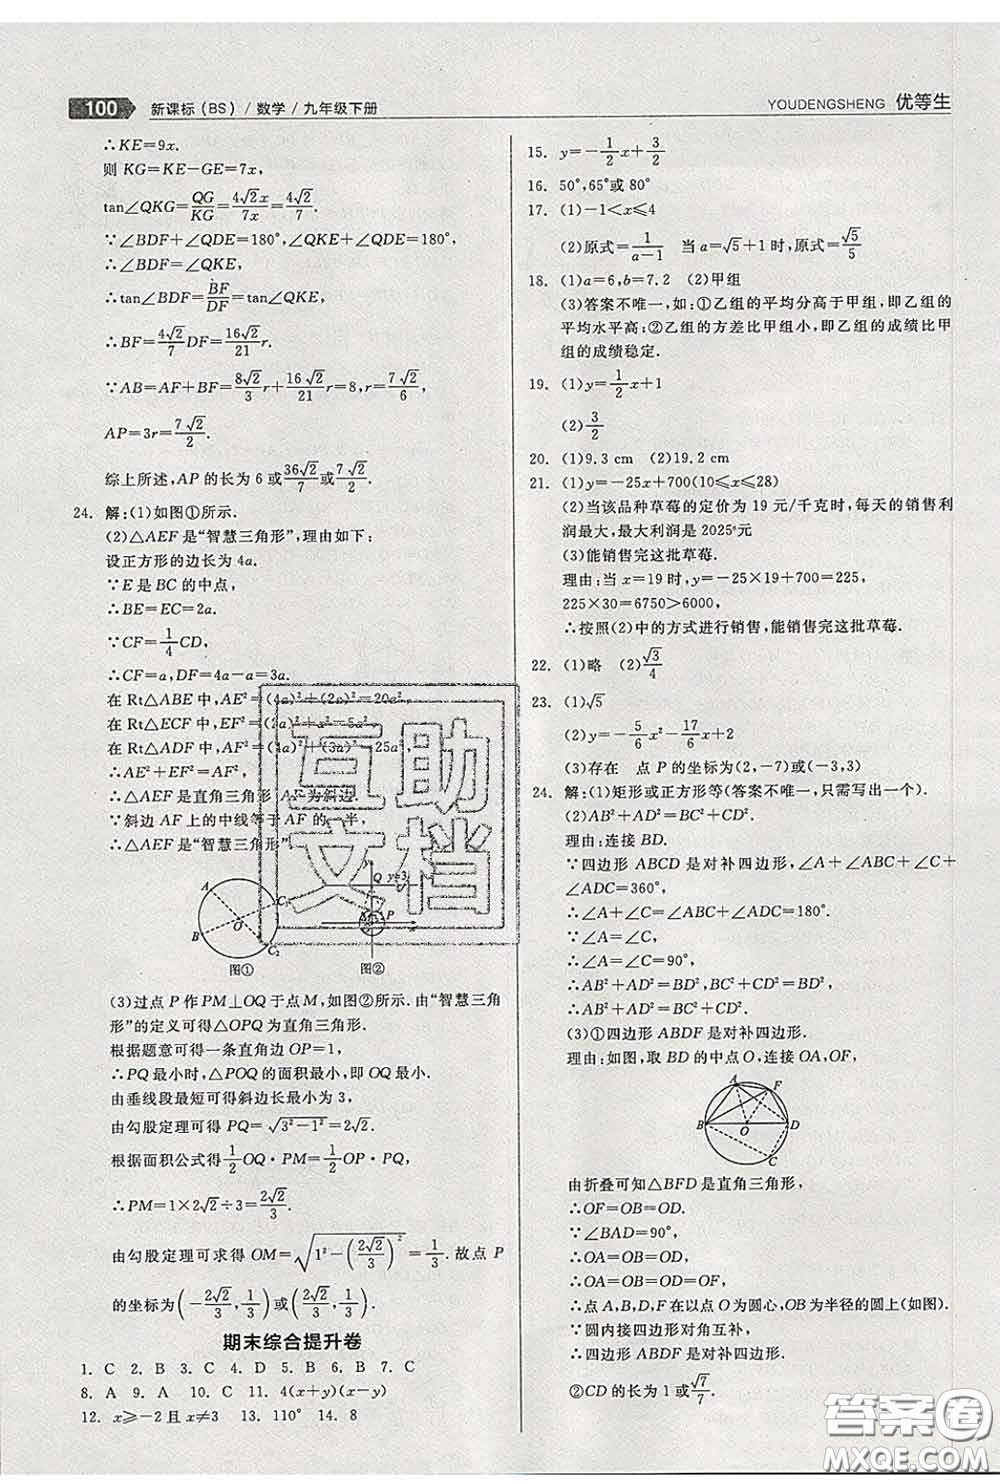 100 新课标(BS)/数学/九年级下册
YOUDENGSHENG 优等生
∴KE=9x.
则 KG=KE−GE=7x,
tan∠QKG=QG/KG=4√2x/7x=4√2/7.
∵∠BDF+∠QDE=180°,∠QKE+∠QDE=180°,
∴∠BDF=∠QKE,
∴tan∠BDF=BF/DF=tan∠QKE,
∴BF=4√2/7DF=16√2/21r.
∵AB=AF+BF=8√2/3r+16√2/21r=8,r=7√2/6,
AP=3r=7√2/2.
综上所述,AP的长为6或36√2/7或7√2/2.
24. 解:(1)如图①所示.
(2)△AEF是“智慧三角形”,理由如下:
设正方形的边长为4a.
∵E是BC的中点,
∴BE=EC=2a.
∵CF=1/4CD,
∴CF=a,DF=4a−a=3a.
在Rt△ABE中,AE²=(4a)²+(2a)²=20a².
在Rt△ECF中,EF²=(2a)²+a²=5a².
在Rt△ADF中,AF²=(4a)²+(3a)²=25a².
∴AE²+EF²=AF²,
∴△AEF是直角三角形,AF为斜边.
∵斜边AF上的中线等于AF的一半,
∴△AEF是“智慧三角形”.
A B O C₁ C₂ 图①
Q y=3 P x 图②
(3)过点P作PM⊥OQ于点M,如图②所示.由“智慧三角
形”的定义可得△OPQ为直角三角形.
根据题意可得一条直角边OP=1,
∴PQ最小时,△POQ的面积最小,即OQ最小.
由垂线段最短可得斜边长最小为3,
由勾股定理可得PQ=√(3²−1²)=2√2.
根据面积公式得1/2OQ·PM=1/2OP·PQ,
∴PM=1×2√2÷3=2√2/3.
由勾股定理可求得OM=√(1²−(2√2/3)²)=1/3.故点P
的坐标为(−2√2/3,1/3)或(2√2/3,1/3).
期末综合提升卷
1. C 2. B 3. C 4. D 5. B 6. B 7. C
8. A 9. A 10. C 11. 4(x+y)(x−y)
12. x≥−2且x≠3 13. 110° 14. 8
15. y=−1/2x+3/2
16. 50°,65°或80°
17. (1)−1<x≤4
(2)原式=1/(a−1) 当a=√5+1时,原式=√5/5
18. (1)a=6,b=7.2 (2)甲组
(3)答案不唯一,如:①乙组的平均分高于甲组,即乙组的
平均水平高;②乙组的方差比甲组小,即乙组的成绩比甲
组的成绩稳定.
19. (1)y=1/2x+1
(2)3/2
20. (1)9.3 cm (2)19.2 cm
21. (1)y=−25x+700(10≤x≤28)
(2)当该品种草莓的定价为19元/千克时,每天的销售利
润最大,最大利润是2025元
(3)能销售完这批草莓.
理由:当x=19时,y=−25×19+700=225,
225×30=6750>6000,
∴按照(2)中的方式进行销售,能销售完这批草莓.
22. (1)略 (2)√3/4
23. (1)√5
(2)y=−5/6x²−17/6x+2
(3)存在 点P的坐标为(2,−7)或(−3,3)
24. 解:(1)矩形或正方形等(答案不唯一,只需写出一个).
(2)AB²+AD²=BC²+CD².
理由:连接BD.
∵四边形ABCD是对补四边形,∠A+∠ABC+∠C+
∠ADC=360°,
∴∠A+∠C=∠ABC+∠ADC=180°.
∵∠A=90°,
∴∠A=∠C=90°,
∴AB²+AD²=BD²,BC²+CD²=BD²,
∴AB²+AD²=BC²+CD².
(3)①四边形ABDF是对补四边形.
理由:如图,取BD的中点O,连接OA,OF,
A F B O D C
由折叠可知△BFD是直角三角形,
∴OF=OB=OD.
∵∠BAD=90°,
∴OA=OB=OD,
∴OA=OB=OD=OF,
∴点A,B,D,F在以点O为圆心,OB为半径的圆上(如图).
∵圆内接四边形对角互补,
∴四边形ABDF是对补四边形.
②CD的长为1或√7/7
互助文档
答案圈
MXQE.COM